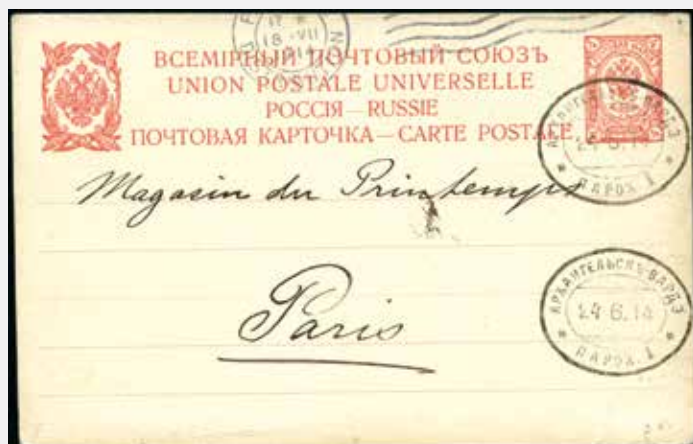 18 VII
1914
ВСЕМІРНЫЙ ПОЧТОВЫЙ СОЮЗЪ
UNION POSTALE UNIVERSELLE
РОССІЯ — RUSSIE
ПОЧТОВАЯ КАРТОЧКА — CARTE POSTALE.
АРХАНГЕЛЬСКЪ-ВАРДЭ
24 6.14
* ПАРОХ. 1 *
Magasin du Printemps
Paris
АРХАНГЕЛЬСКЪ-ВАРДЭ
24 6.14
* ПАРОХ. 1 *